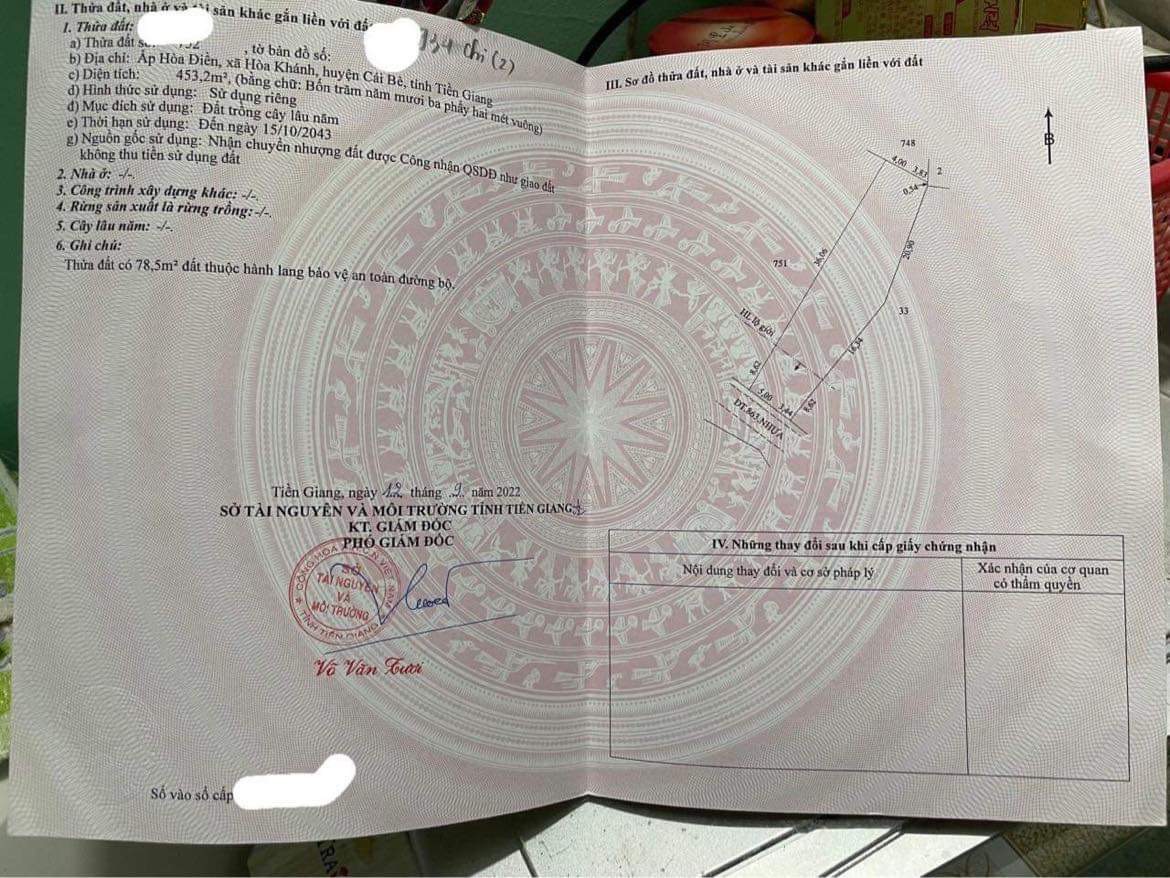 II. Thửa đất, nhà ở và tài sản khác gắn liền với đất
1. Thửa đất:
734 chi (2)
a) Thửa đất số: , tờ bản đồ số:
b) Địa chỉ: Ấp Hòa Điền, xã Hòa Khánh, huyện Cái Bè, tỉnh Tiền Giang
c) Diện tích: 453,2m², (bằng chữ: Bốn trăm năm mươi ba phẩy hai mét vuông)
d) Hình thức sử dụng: Sử dụng riêng
đ) Mục đích sử dụng: Đất trồng cây lâu năm
e) Thời hạn sử dụng: Đến ngày 15/10/2043
g) Nguồn gốc sử dụng: Nhận chuyển nhượng đất được Công nhận QSDĐ như giao đất
không thu tiền sử dụng đất
2. Nhà ở: -/-.
3. Công trình xây dựng khác: -/-.
4. Rừng sản xuất là rừng trồng: -/-.
5. Cây lâu năm: -/-.
6. Ghi chú:
Thửa đất có 78,5m² đất thuộc hành lang bảo vệ an toàn đường bộ.
Tiền Giang, ngày 12 tháng 9. năm 2022
SỞ TÀI NGUYÊN VÀ MÔI TRƯỜNG TỈNH TIỀN GIANG
KT. GIÁM ĐỐC
PHÓ GIÁM ĐỐC
CỘNG HÒA VIỆT NAM
SỞ
TÀI NGUYÊN
VÀ
MÔI TRƯỜNG
TỈNH TIỀN GIANG
Võ Văn Tươi
Số vào sổ cấp
III. Sơ đồ thửa đất, nhà ở và tài sản khác gắn liền với đất
B
748
4,00
3,83
2
0,54
36,06
20,90
751
33
HL lộ giới
16,34
T
8,62
5,00
3,44
8,62
ĐT.863 NHỰA
IV. Những thay đổi sau khi cấp giấy chứng nhận
Nội dung thay đổi và cơ sở pháp lý
Xác nhận của cơ quan
có thẩm quyền